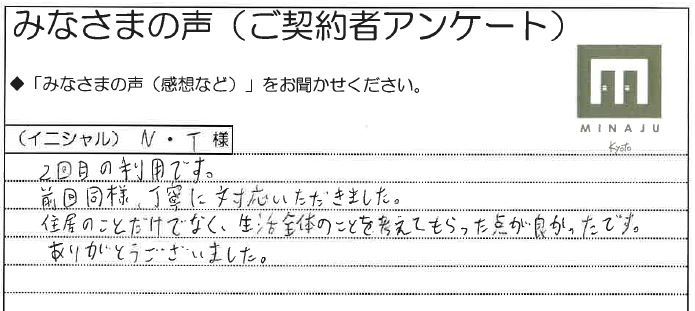 みなさまの声（ご契約者アンケート）
◆「みなさまの声（感想など）」をお聞かせください。
MINAJU
Kyoto
（イニシャル） N・T 様
2回目の利用です。
前回同様、丁寧に対応いただきました。
住居のことだけでなく、生活全体のことを考えてもらった点が良かったです。
ありがとうございました。